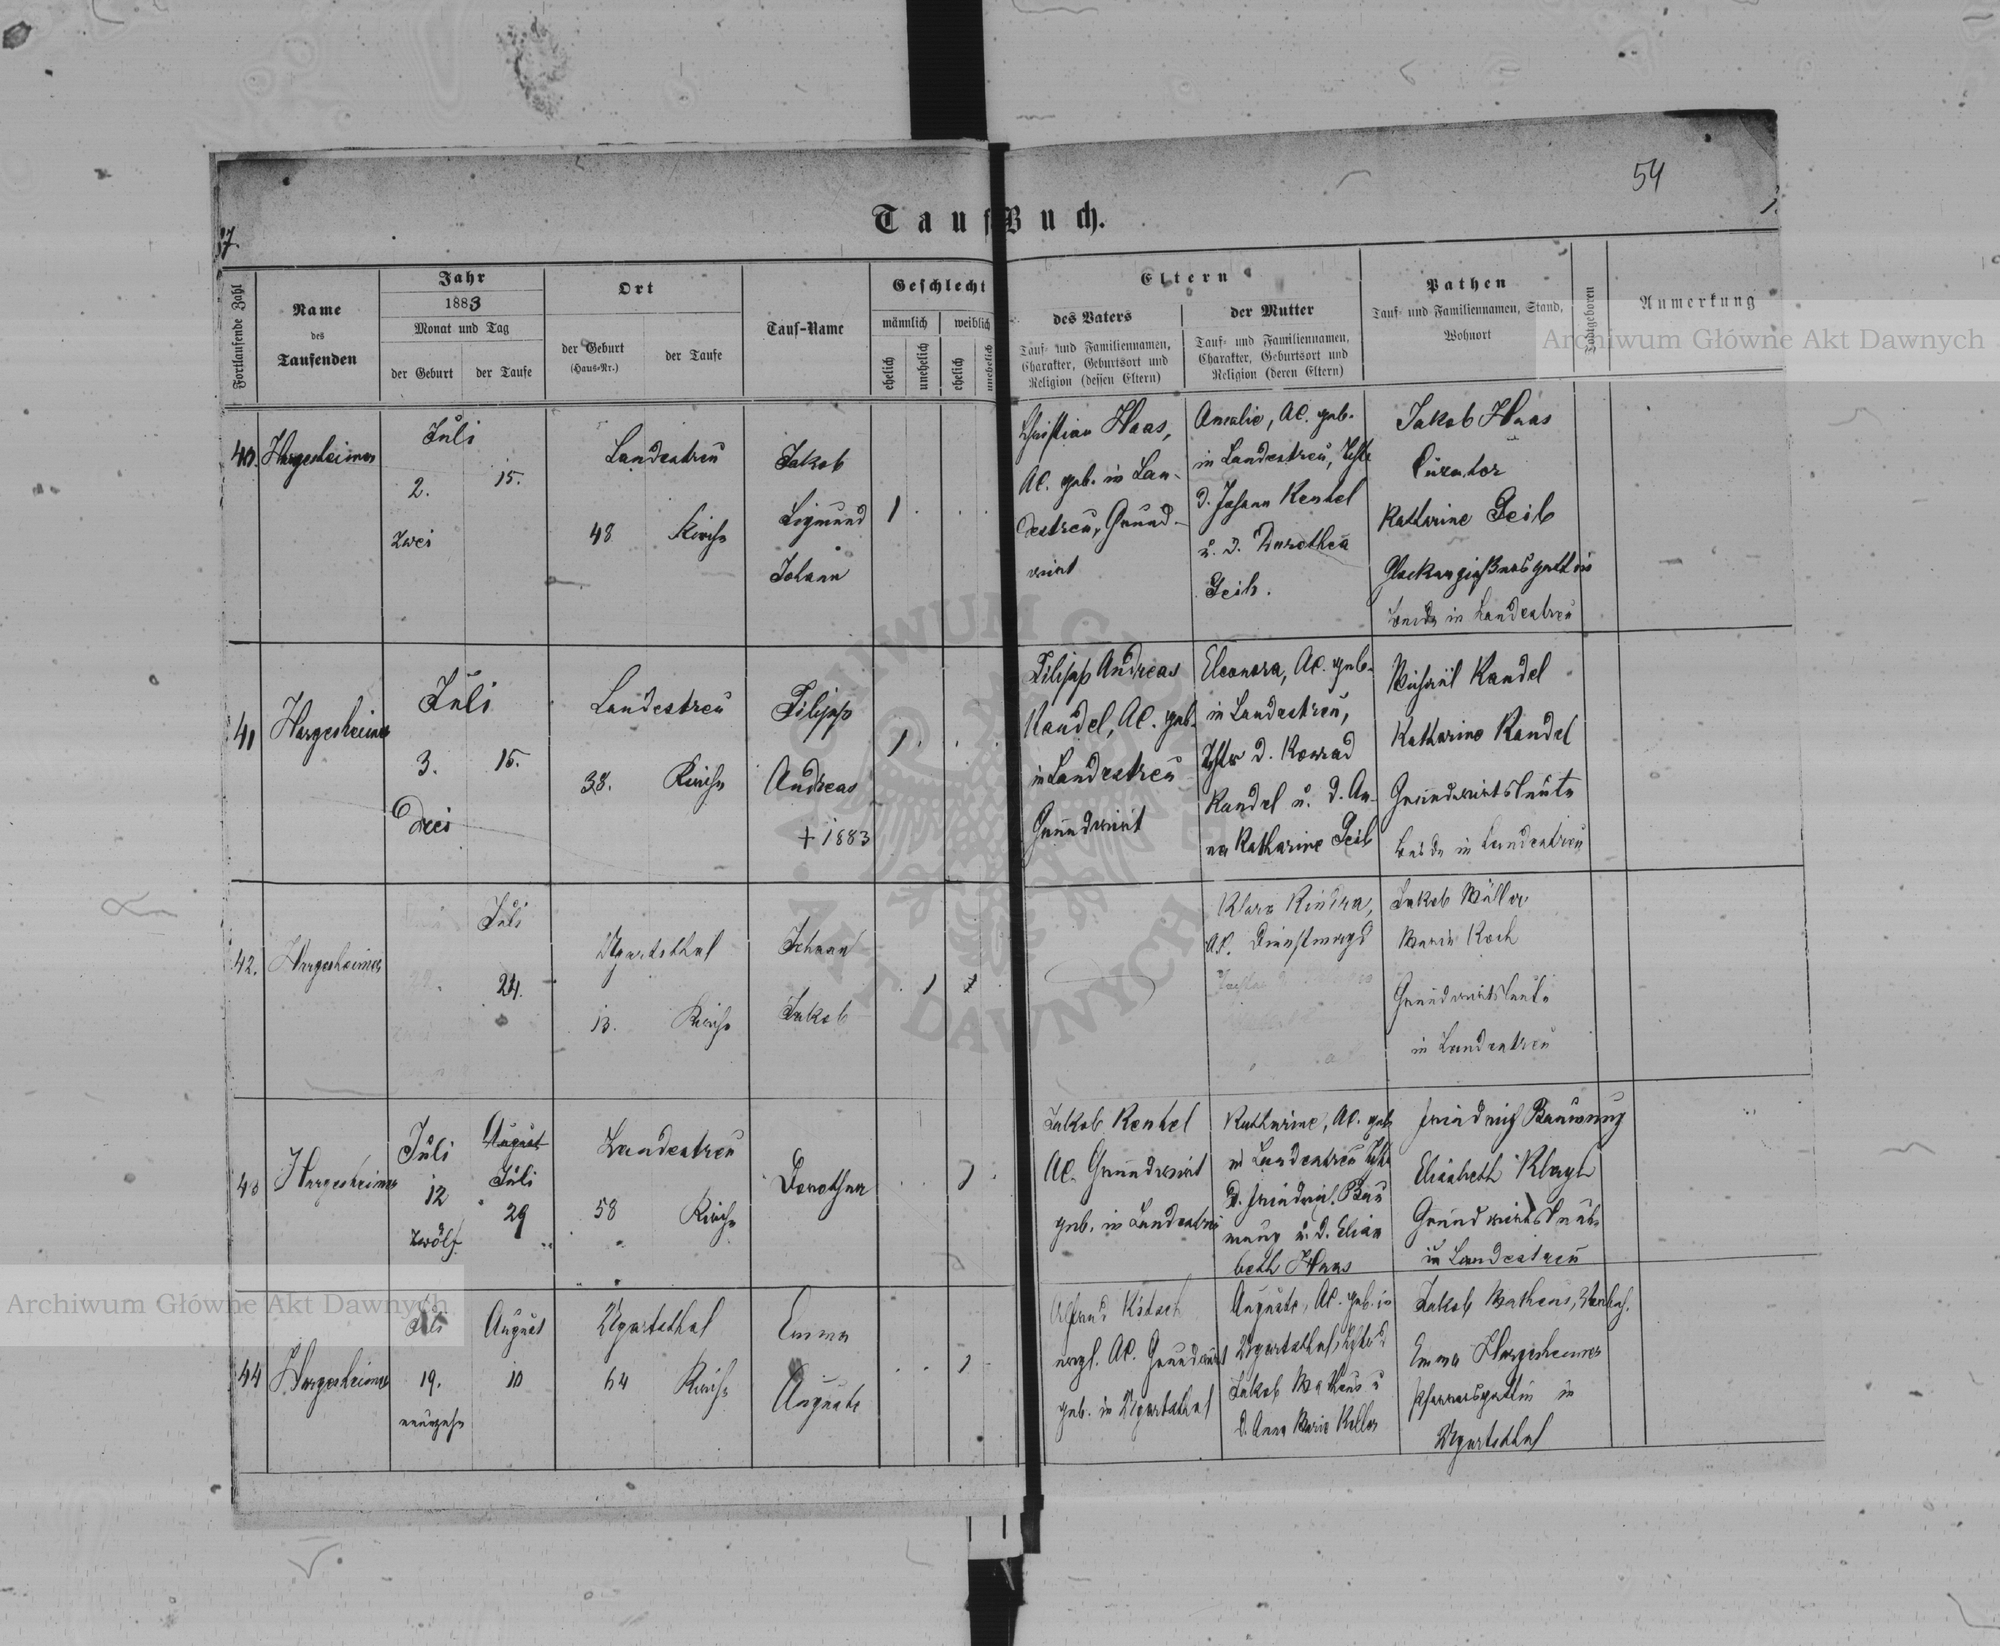 54
37
1.
Tauf-Buch.
Fortlaufende Zahl
Name
des
Taufenden
Jahr
1883
Monat und Tag
der Geburt
der Taufe
Ort
der Geburt
(Haus-Nr.)
der Taufe
Tauf-Name
Geschlecht
männlich
weiblich
ehelich
unehelich
ehelich
unehelich
Eltern
des Vaters
Tauf- und Familiennamen,
Charakter, Geburtsort und
Religion (dessen Eltern)
der Mutter
Tauf- und Familiennamen,
Charakter, Geburtsort und
Religion (deren Eltern)
Pathen
Tauf- und Familiennamen, Stand,
Wohnort
Todtgeboren
Anmerkung
40.
Hargesheimer
Juli
2.
15.
zwei
Landestreu
48
Kirche
Jakob
Sigmund
Johann
1
Christian Haas,
AC. geb. in Lan-
destreu, Grund-
wirt
Amalie, AC. geb.
in Landestreu, Tchtr
d. Johann Rentel
u. d. Dorothea
Geib.
Jakob Haas
Curator
Katharine Geib
Glockengießersgattin
beide in Landestreu
41
Hargesheimer
Juli
3.
15.
Drei
Landestreu
38.
Kirche
Filipp
Andreas
+ 1883
1
Filipp Andreas
Kandel, AC. geb.
in Landestreu
Grundwirt
Eleonora, AC. geb.
in Landestreu,
Tchtr d. Konrad
Kandel u. d. An-
na Katharine Geib
Michael Kandel
Katharine Kandel
Grundwirtsleute
beide in Landestreu
42.
Hargesheimer
Juli
24.
Ugartsthal
13.
Kirche
Johann
Jakob
1
Klara
AC. Dienstmagd
Jakob Müller
Maria Koch
Grundwirtsleute
in Landestreu
43
Hargesheimer
Juli
12
zwölf
August
Juli
29
Landestreu
58
Kirche
Dorothea
1
Jakob Rentel
AC. Grundwirt
geb. in Landestreu
Katharine, AC. geb.
in Landestreu Tchtr
d. Friedrich Bau
mung u. d. Elisa
beth Haas
Friedrich Baumung
Elisabeth
Grundwirtsleute
in Landestreu
44
Hargesheimer
Juli
19.
neunzehn
August
10
Ugartsthal
64
Kirche
Emma
Auguste
1
AC. Grundwirt
geb. in Ugartsthal
Auguste, AC. geb. in
Ugartsthal, Tchtr d
Jakob Matheus u
d. Anna Maria Keller
Jakob Matheus,
Emma Hargesheimer
Pfarrersgattin in
Ugartsthal
Archiwum Główne Akt Dawnych
Archiwum Główne Akt Dawnych